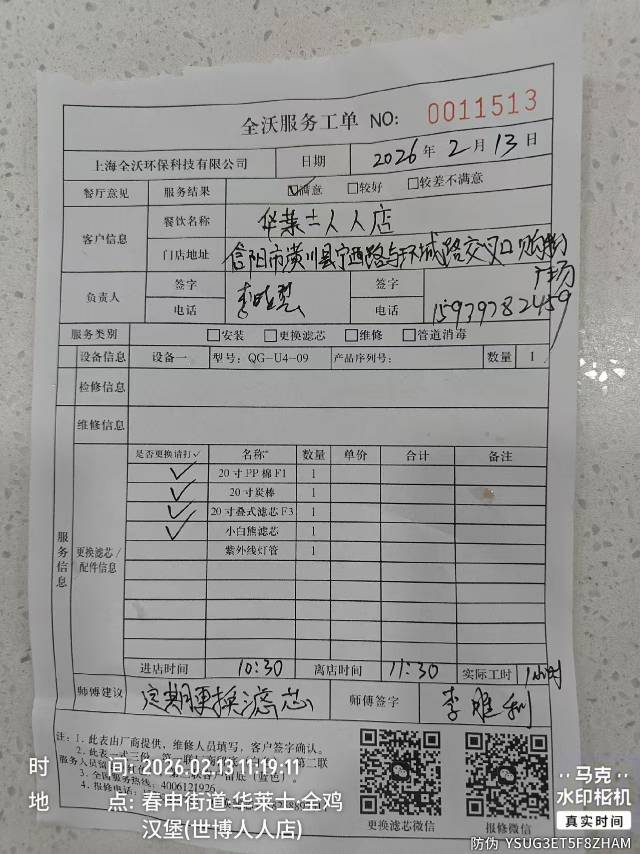 全沃服务工单 NO: 0011513
上海全沃环保科技有限公司 日期 2026年2月13日
餐厅意见 服务结果 ☑满意 □较好 □较差不满意
客户信息 餐饮名称 华莱士人人店
门店地址 信阳市潢川县宁西路与环城路交叉口 购物广场
负责人 签字 签字
电话 电话 15979782459
服务类别 □安装 □更换滤芯 □维修 □管道消毒
设备信息 设备一 型号: QG-U4-09 产品序列号: 数量 1
检修信息
维修信息
服务信息
更换滤芯/配件信息
是否更换请打√ 名称 数量 单价 合计 备注
√ 20寸PP棉F1 1
√ 20寸炭棒 1
√ 20寸叠式滤芯F3 1
√ 小白熊滤芯 1
紫外线灯管 1
进店时间 10:30 离店时间 11:30 实际工时 1小时
师傅建议 定期更换滤芯 师傅签字 李雅利
注: 1. 此表由厂商提供, 维修人员填写, 客户签字确认。
2. 此表一式三份, 第一联
服务人员留 第二联
3. 全国服务热线: 4006121926
4. 报修电话
更换滤芯微信 报修微信
时 间: 2026.02.13 11:19:11
地 点: 春申街道·华莱士·全鸡
汉堡(世博人人店)
马克
水印相机
真实时间
防伪 YSUG3ET5F8ZHAM